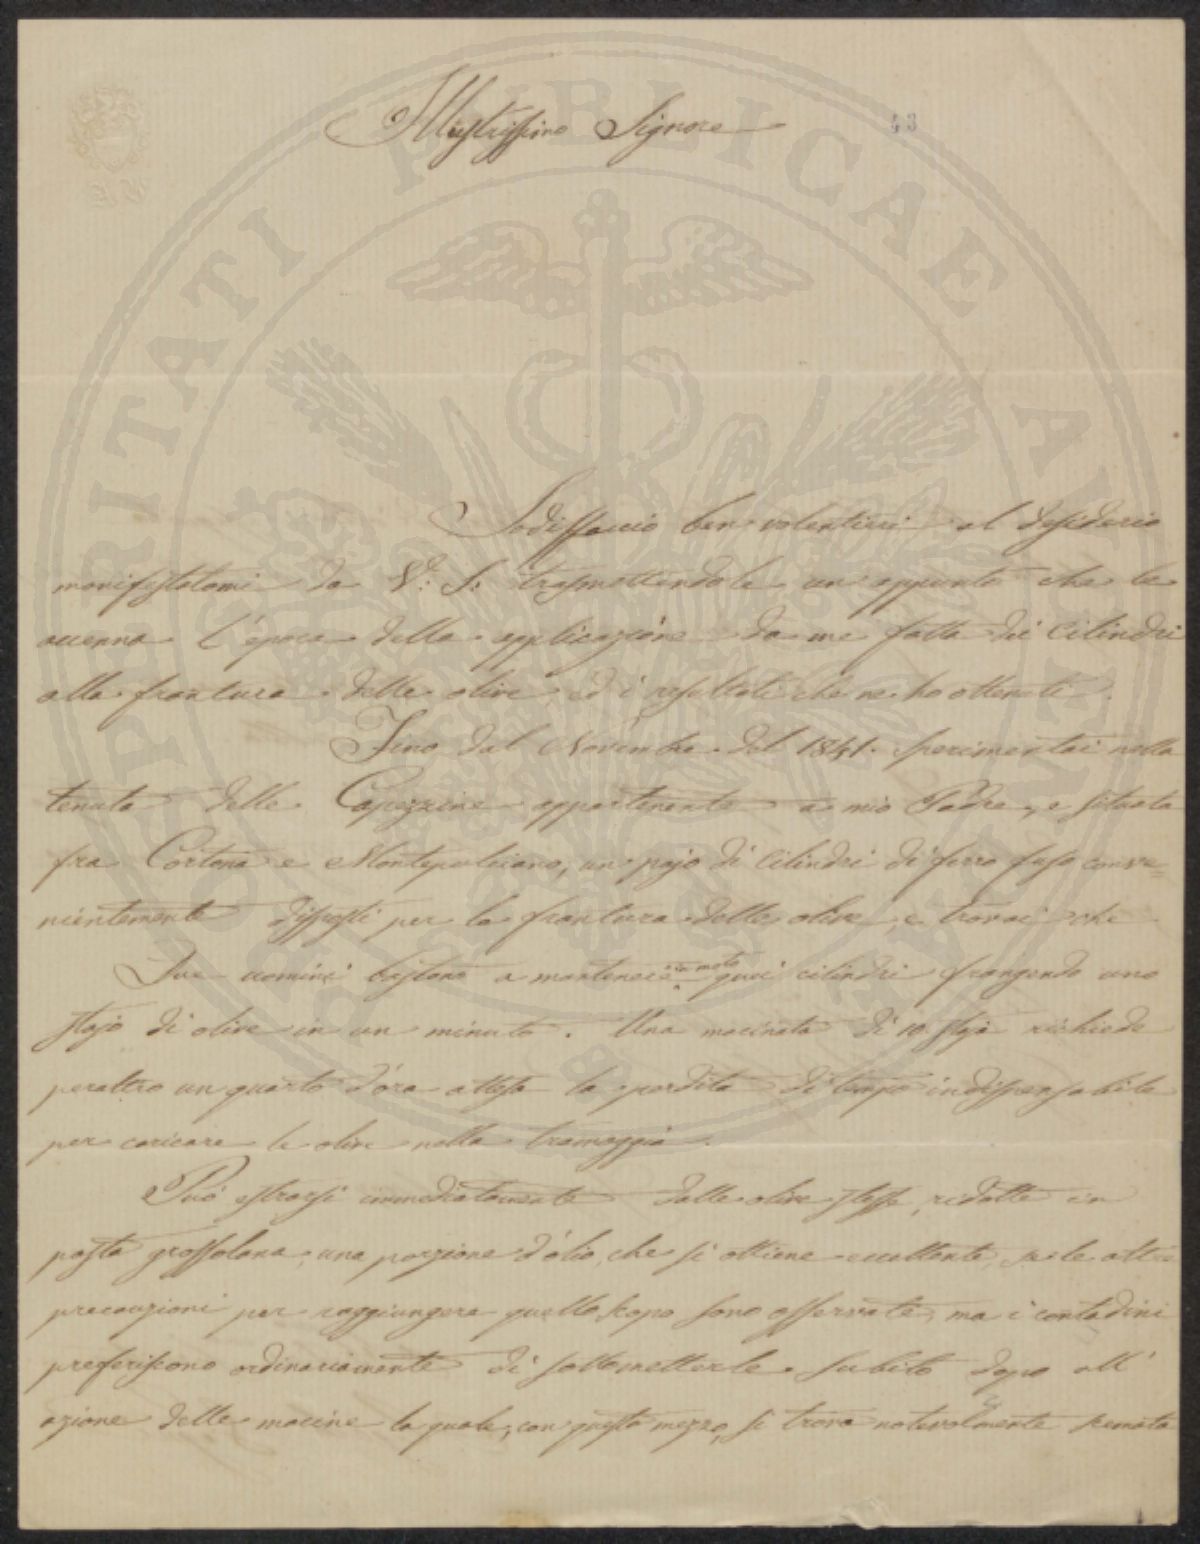 Illustrissimo Signore
43
Sodisfaccio ben volentieri al desiderio
manifestatomi da V.a S. trasmettendole un appunto che le
accenna l'epoca della applicazione da me fatta dei Cilindri
alla frantura delle olive, ed i resultati che ne ho ottenuti.
Fino dal Novembre del 1841. sperimentai nella
tenuta delle Capezzine appartenente a mio Padre, e situata
fra Cortona e Montepulciano, un pajo di Cilindri di ferro fuso conve=
nientemente disposti per la frantura delle olive, e trovai che
Due uomini bastano a mantenere in moto quei cilindri frangendo uno
stajo di olive in un minuto. Una macinata di 10 staja richiede
peraltro un quarto d'ora attesa la perdita di tempo indispensabile
per caricare le olive nella tramoggia.
Può estrarsi immediatamente dalle olive stesse, ridotte in
pasta grossolana, una porzione d'olio, che si ottiene eccellente, se le altre
precauzioni per raggiungere quello scopo sono osservate, ma i contadini
preferiscono ordinariamente di sottometterle subito dopo all'
azione delle macine la quale, con questo mezzo, si trova notevolmente scemata
PROSPERITATI PUBLICAE AUGENDAE